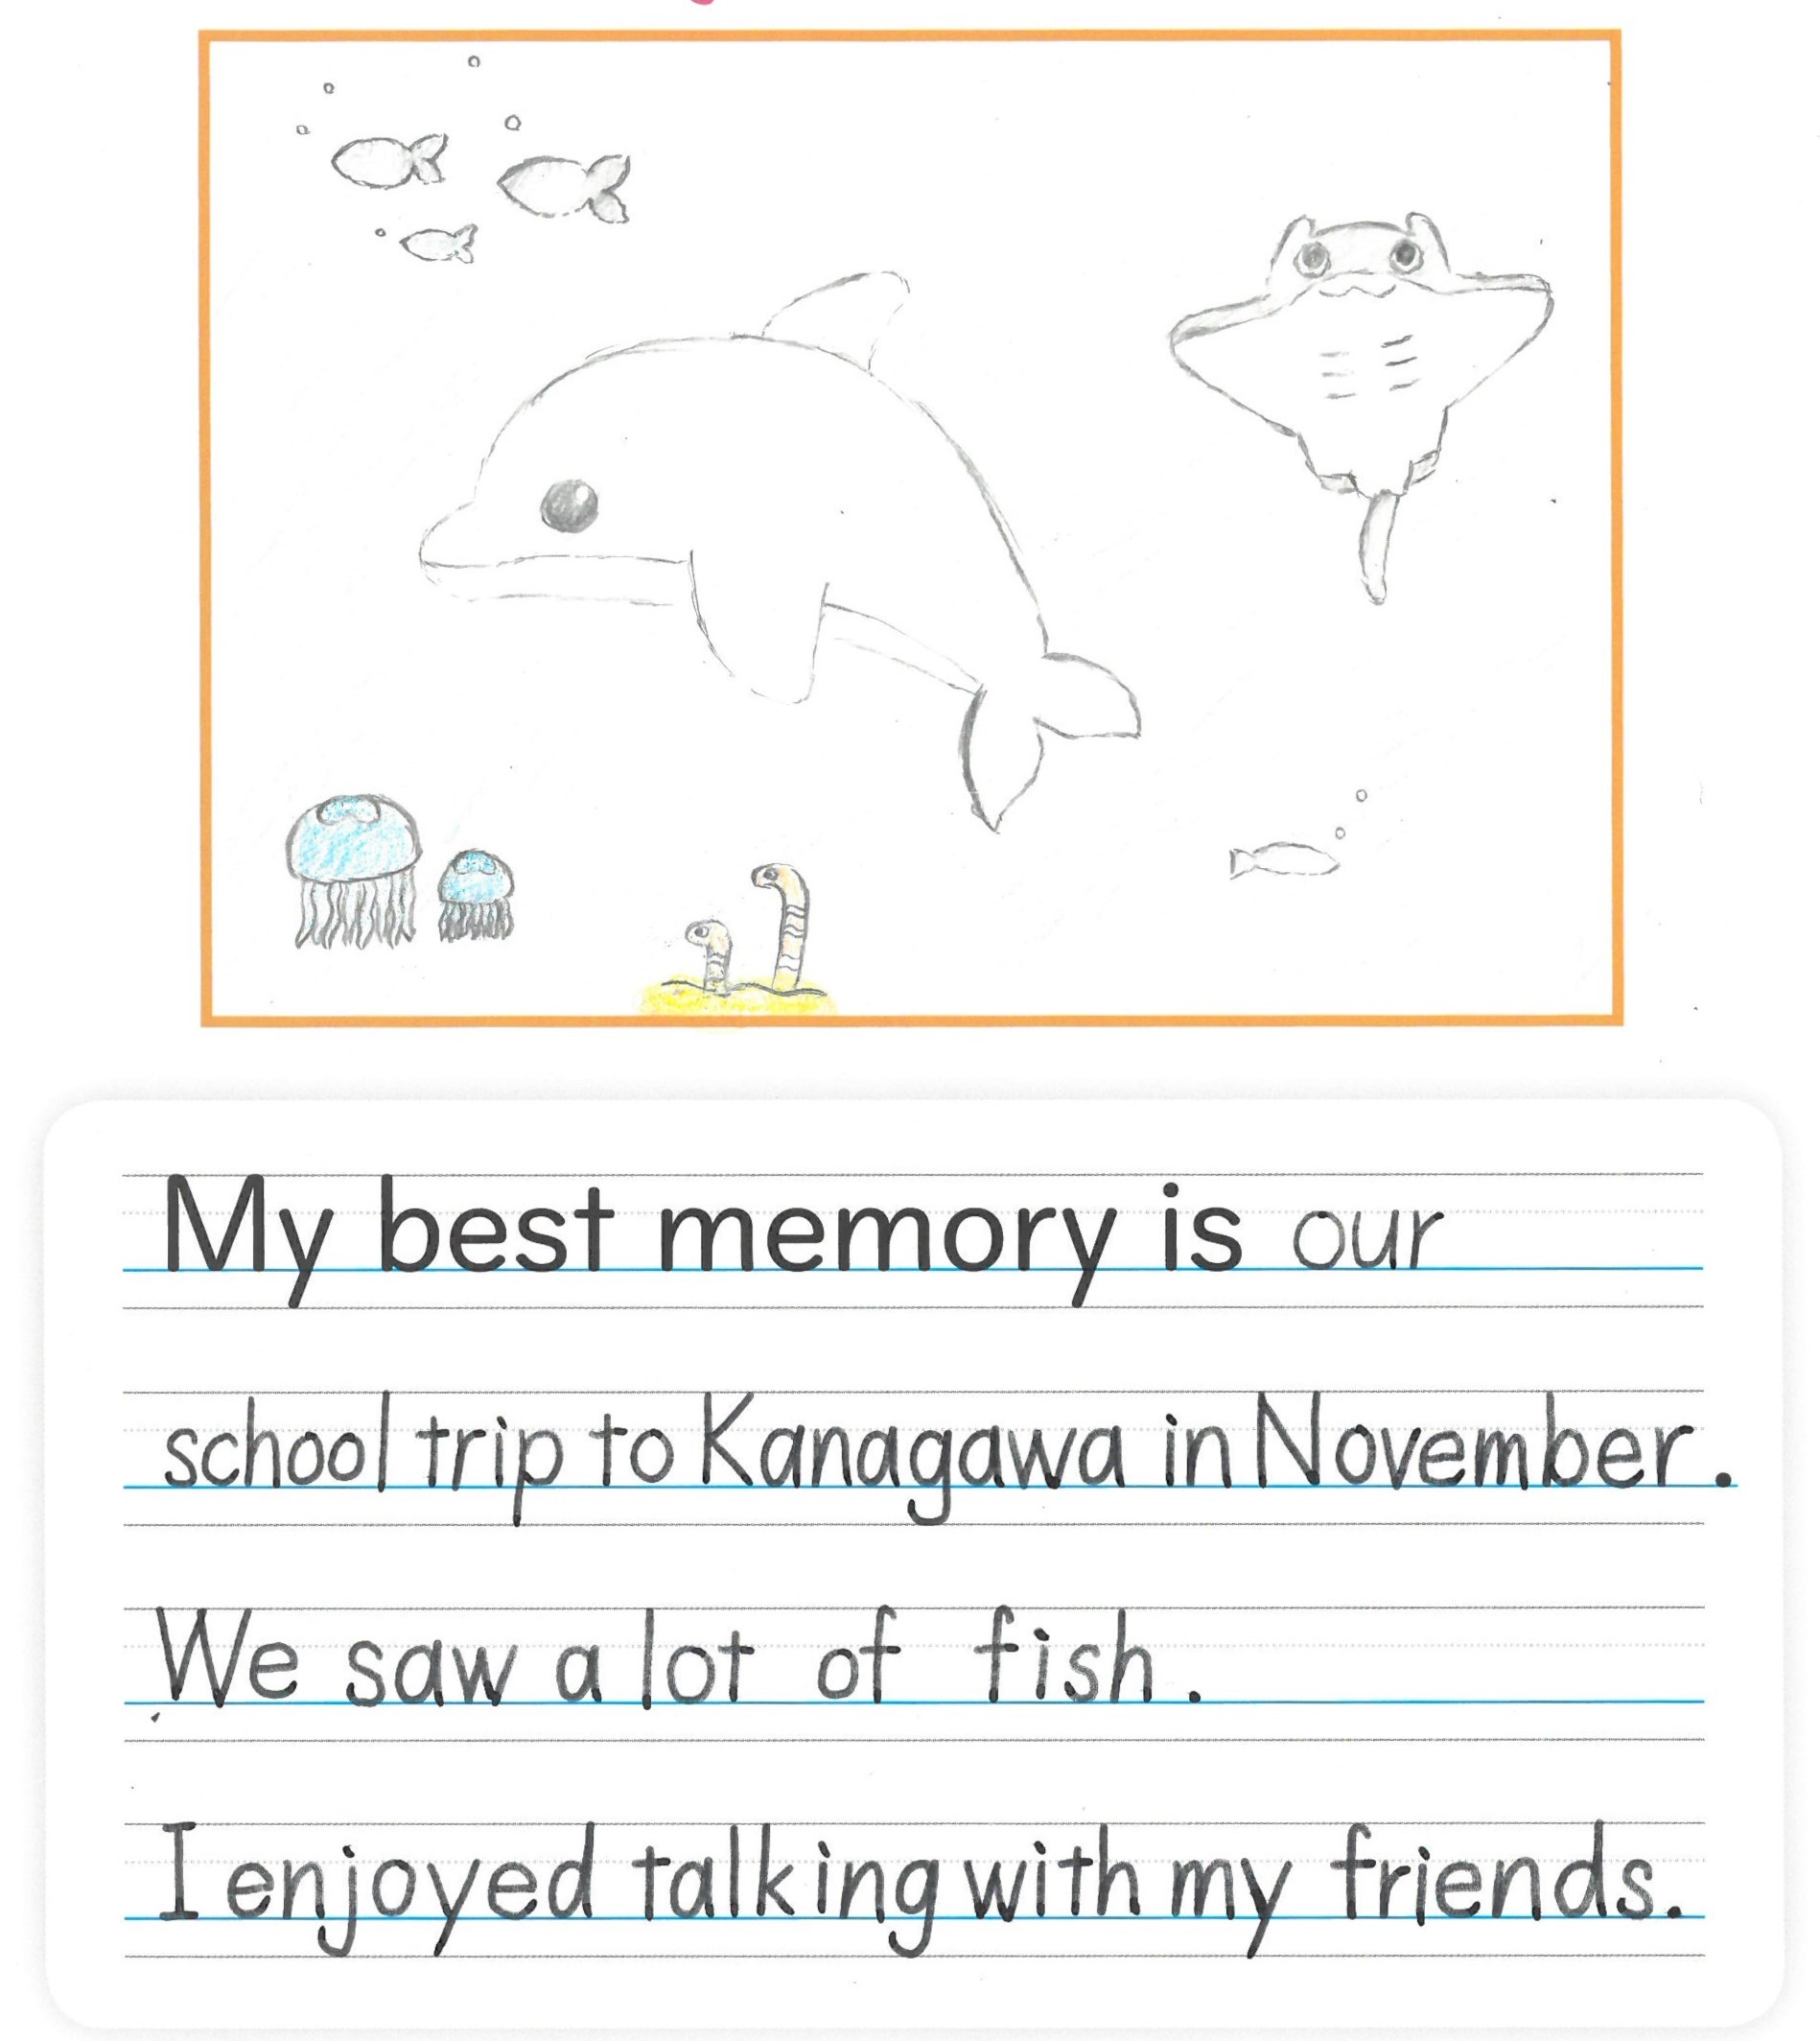 My best memory is our
school trip to Kanagawa in November.
We saw a lot of fish.
I enjoyed talking with my friends.